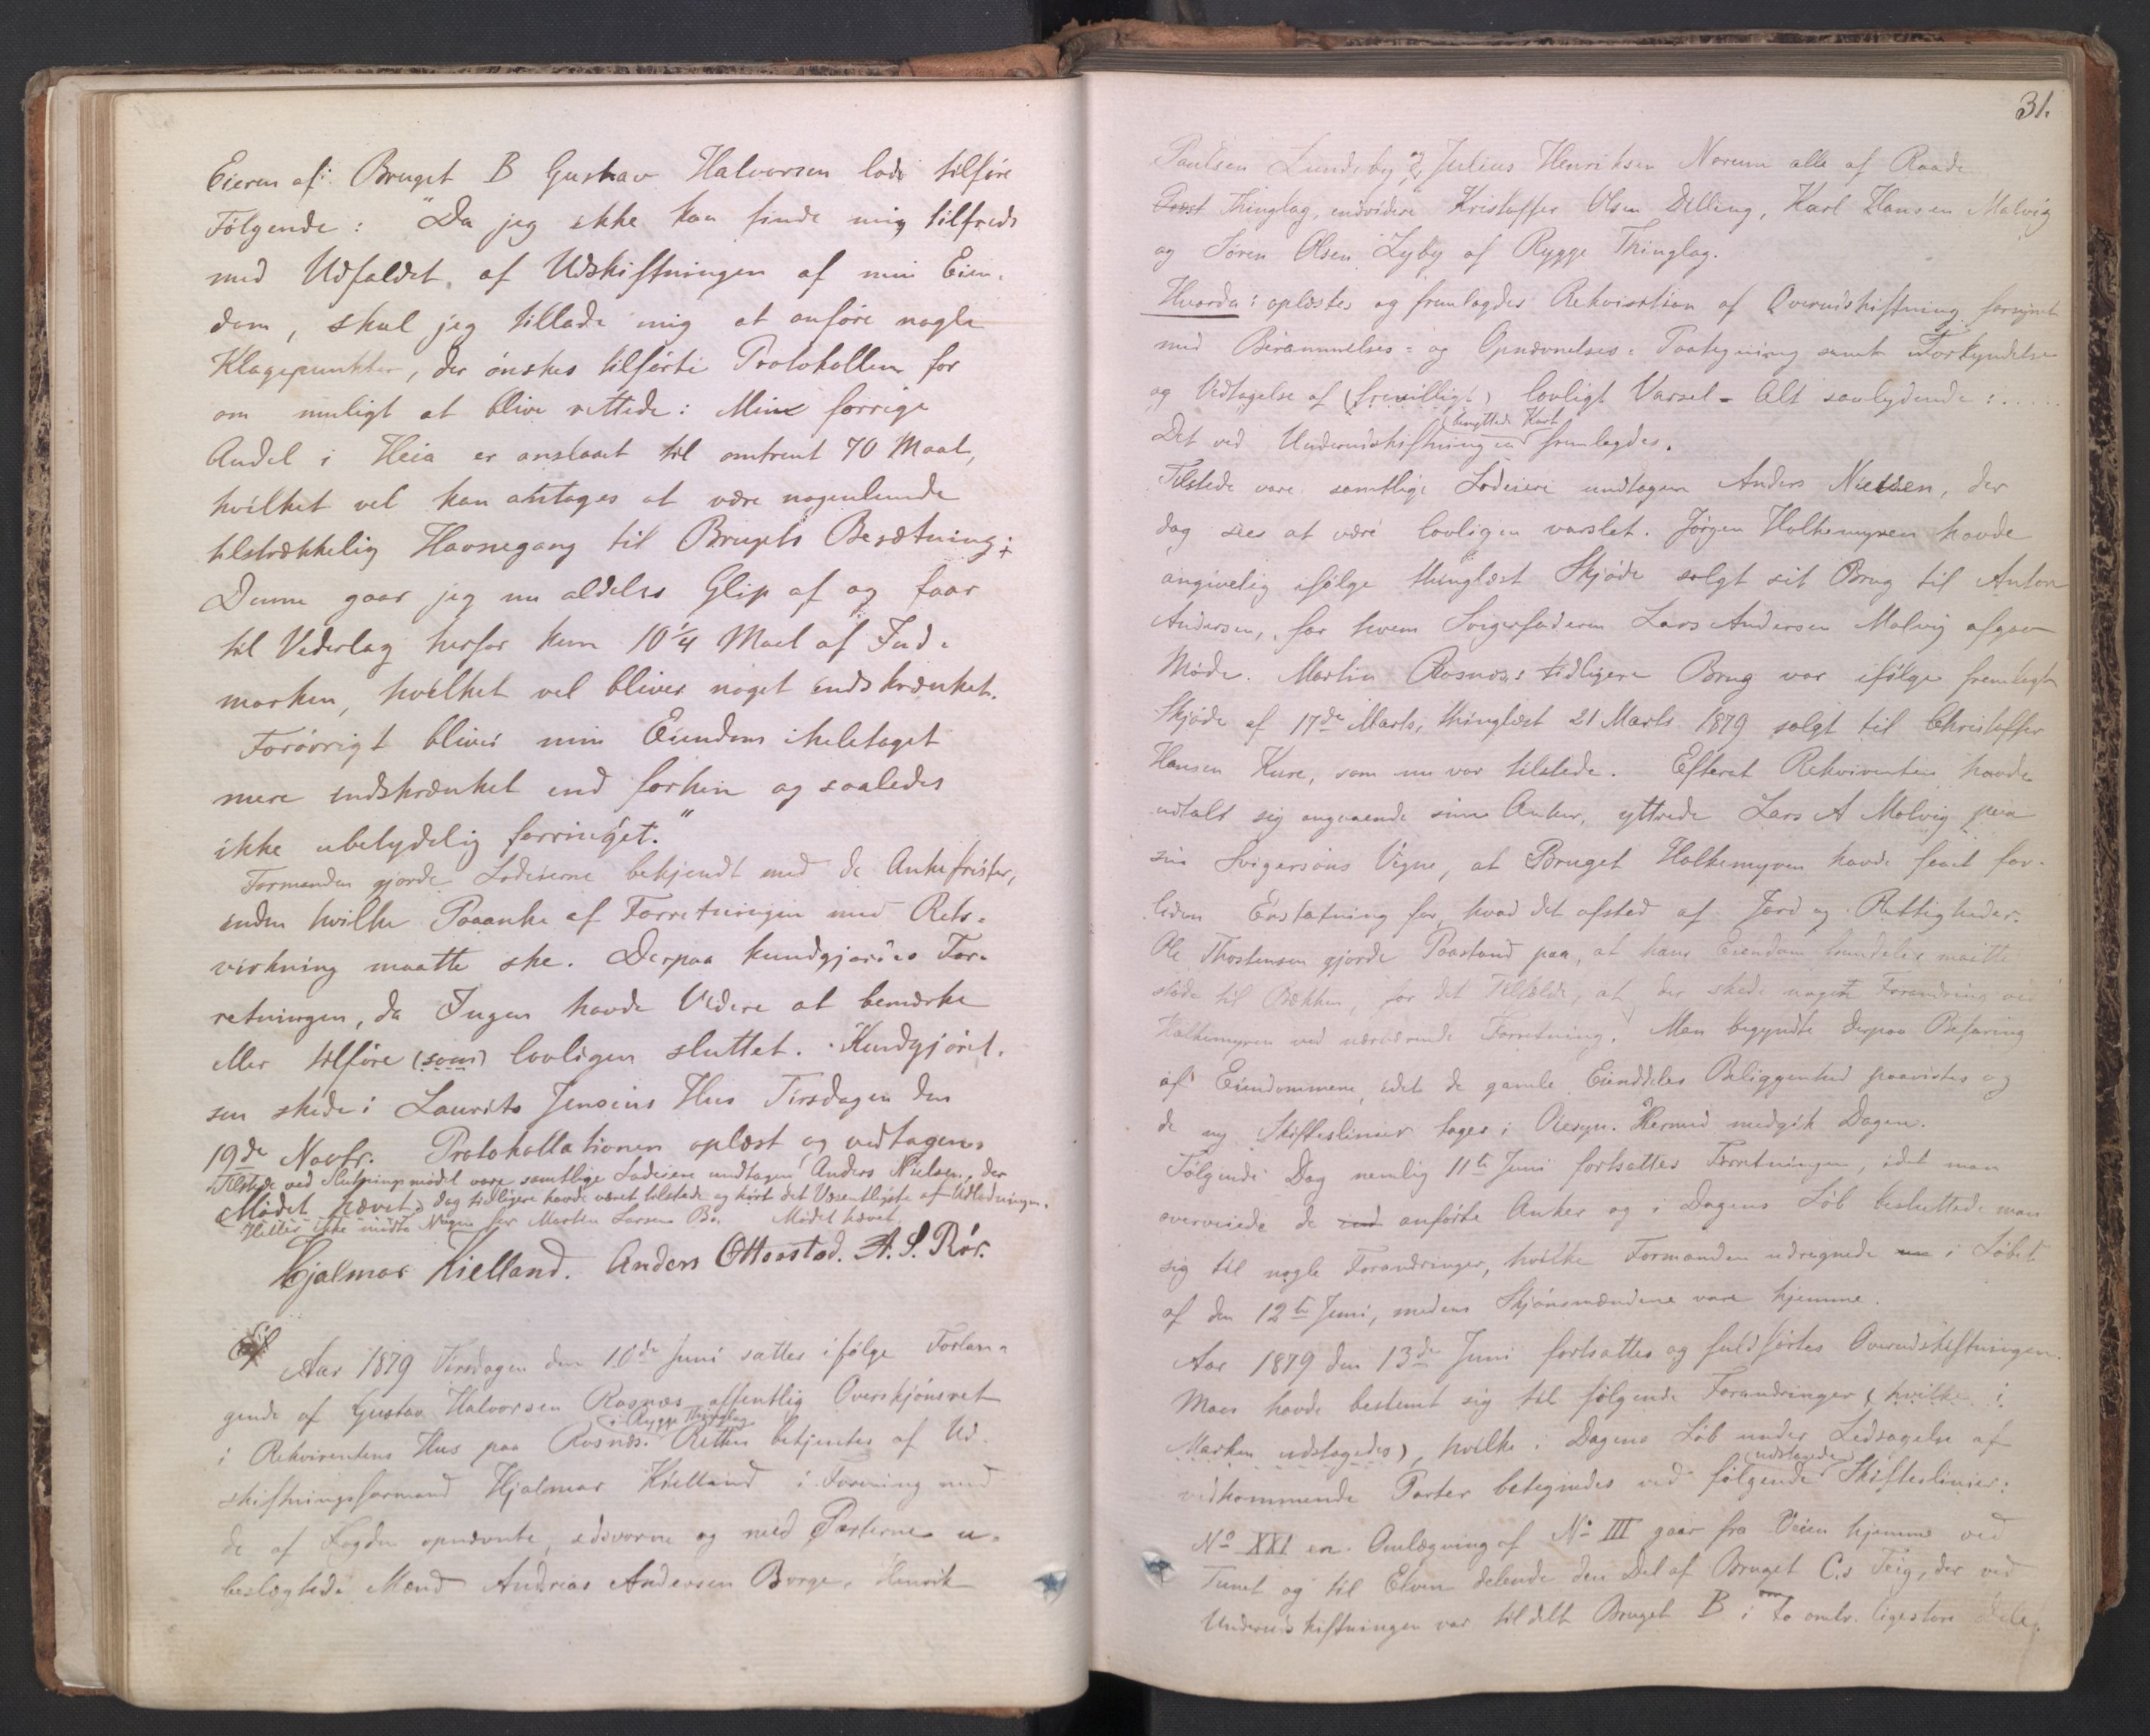 Eieren af: Bruget B Gustav Halvorsen lod tilføre
Følgende: "Da jeg ikke kan finde mig tilfreds
med Udfaldet, af Udskiftningen af min Eien-
dom, skal jeg tillade mig at anføre nogle
Klagepunkter, der ønskes tilførte Protokollen for
om muligt at blive rettede: Min forrige
Andel i Heia er anslaaet til omtrent 70 Maal,
hvilket vel kan antages at være nogenlunde
tilstrækkelig Havnegang til Brugets Besætning;
Denne gaar jeg nu aldeles Glip af og faar
til Vederlag herfor kun 10 1/4 Maal af Ind-
marken, hvilket vel bliver noget indskrænket.
Forøvrigt bliver min Eiendom i heletaget
mere indskrænket end forhen og saaledes
ikke ubetydelig forringet."
Formanden gjorde Lodeierne bekjendt med de Ankefrister,
inden hvilke Paaanke af Forretningen med Rets-
virkning maatte ske. Derpaa kundgjordes For-
retningen, da Ingen havde Videre at bemærke
eller tilføre (som) lovligen sluttet. Kundgjørel-
sen skede i Laurits Jensens Hus Tirsdagen den
19de Novbr. Protokollationen oplæst og vedtagen.
Tilstede ved Slutningsmødet vare samtlige Lodeiere undtagen Anders Nielsen, der
(Mødet hævet.) dog tidligere havde været tilstede og hørt det Væsentligste af Udlodningen.
Heller ikke mødte Nogen for Martin Larsen Bø. Mødet hævet
Hjalmar Kielland. Anders Ottarstad. A. S. Rør.
Aar 1879 Tirsdagen den 10de Juni sattes ifølge Forlan-
gende af Gustav Halvorsen Rosnæs offentlig Overskjønsret
i Rygge Thinglag
i Rekvirentens Hus paa Rosnæs. Retten betjentes af Ud-
skiftningsformand Hjalmar Kielland i Forening med
de af Fogden opnævnte, edsvorne og med Parterne u-
beslægtede Mænd Andreas Andersen Borge, Henrik
31.
Paulsen Lundeby, og Julius Henriksen Norum alle af Raade
Præst Thinglag, endvidere Kristoffer Olsen Dilling, Karl Hansen Malvig
og Søren Olsen Lyby af Rygge Thinglag.
Hvorda: oplæstes og fremlagdes Rekvisition af Overudskiftning forsynet
med Berammelses- og Opnævnelses-Paategning samt Forkyndelse
og Vedtagelse af (frivilligt) lovligt Varsel - Alt saalydende: .....
benyttede Kart
Det ved Underudskiftningen fremlagdes.
Tilstede vare samtlige Lodeiere undtagen Anders Nielsen, der
dog sees at være lovligen varslet. Jørgen Holkemyren havde
angivelig ifølge thinglæst Skjøde solgt sit Brug til Anton
Andersen, for hvem Svigerfaderen Lars Andersen Malvig afgav
Møde. Martin Rosnæs tidligere Brug var ifølge fremlagt
Skjøde af 17de Marts, thinglæst 21 Marts 1879 solgt til Christoffer
Hansen Kure, som nu var tilstede. Efterat Rekvirenten havde
udtalt sig angaaende sine Anker, yttrede Lars A Malvig paa
sin Svigersøns Vegne, at Bruget Holkemyren havde faaet for-
liden Erstatning for, hvad det afstod af Jord og Rettigheder.
Ole Thostensen gjorde Paastand paa, at hans Eiendom fremdeles maatte
støde til Bækken, for det Tilfælde at der skede nogen Forandring ved
Holkemyren ved nærværende Forretning. Man begyndte derpaa Befaring
af Eiendommene, idet de gamle Eienddeles Beliggenhed paavistes og
de ny Skifteslinier toges i Øiesyn. Hermed medgik Dagen.
Følgende Dag nemlig 11te Juni fortsattes Forretningen, idet man
overveiede de ind anførte Anker og i Dagens Løb besluttede man
sig til nogle Forandringer, hvilke Formanden udregnede i Løbet
af den 12te Juni, medens Skjønsmændene vare hjemme.
Aar 1879 den 13de Juni fortsattes og fuldførtes Overudskiftningen.
Man havde bestemt sig til følgende Forandringer (hvilke i
Marken udstagedes), hvilke i Dagens Løb under Ledsagelse af
udstagede
vedkommende Parter betegnedes ved følgende Skifteslinier:
No XXI en Omlægning af No III gaar fra Veien hjemme ved
Tunet og til Elven delende den Del af Bruget C.s Teig, der ved
Underudskiftningen var tildelt Bruget B i to omtr. ligestore Dele.